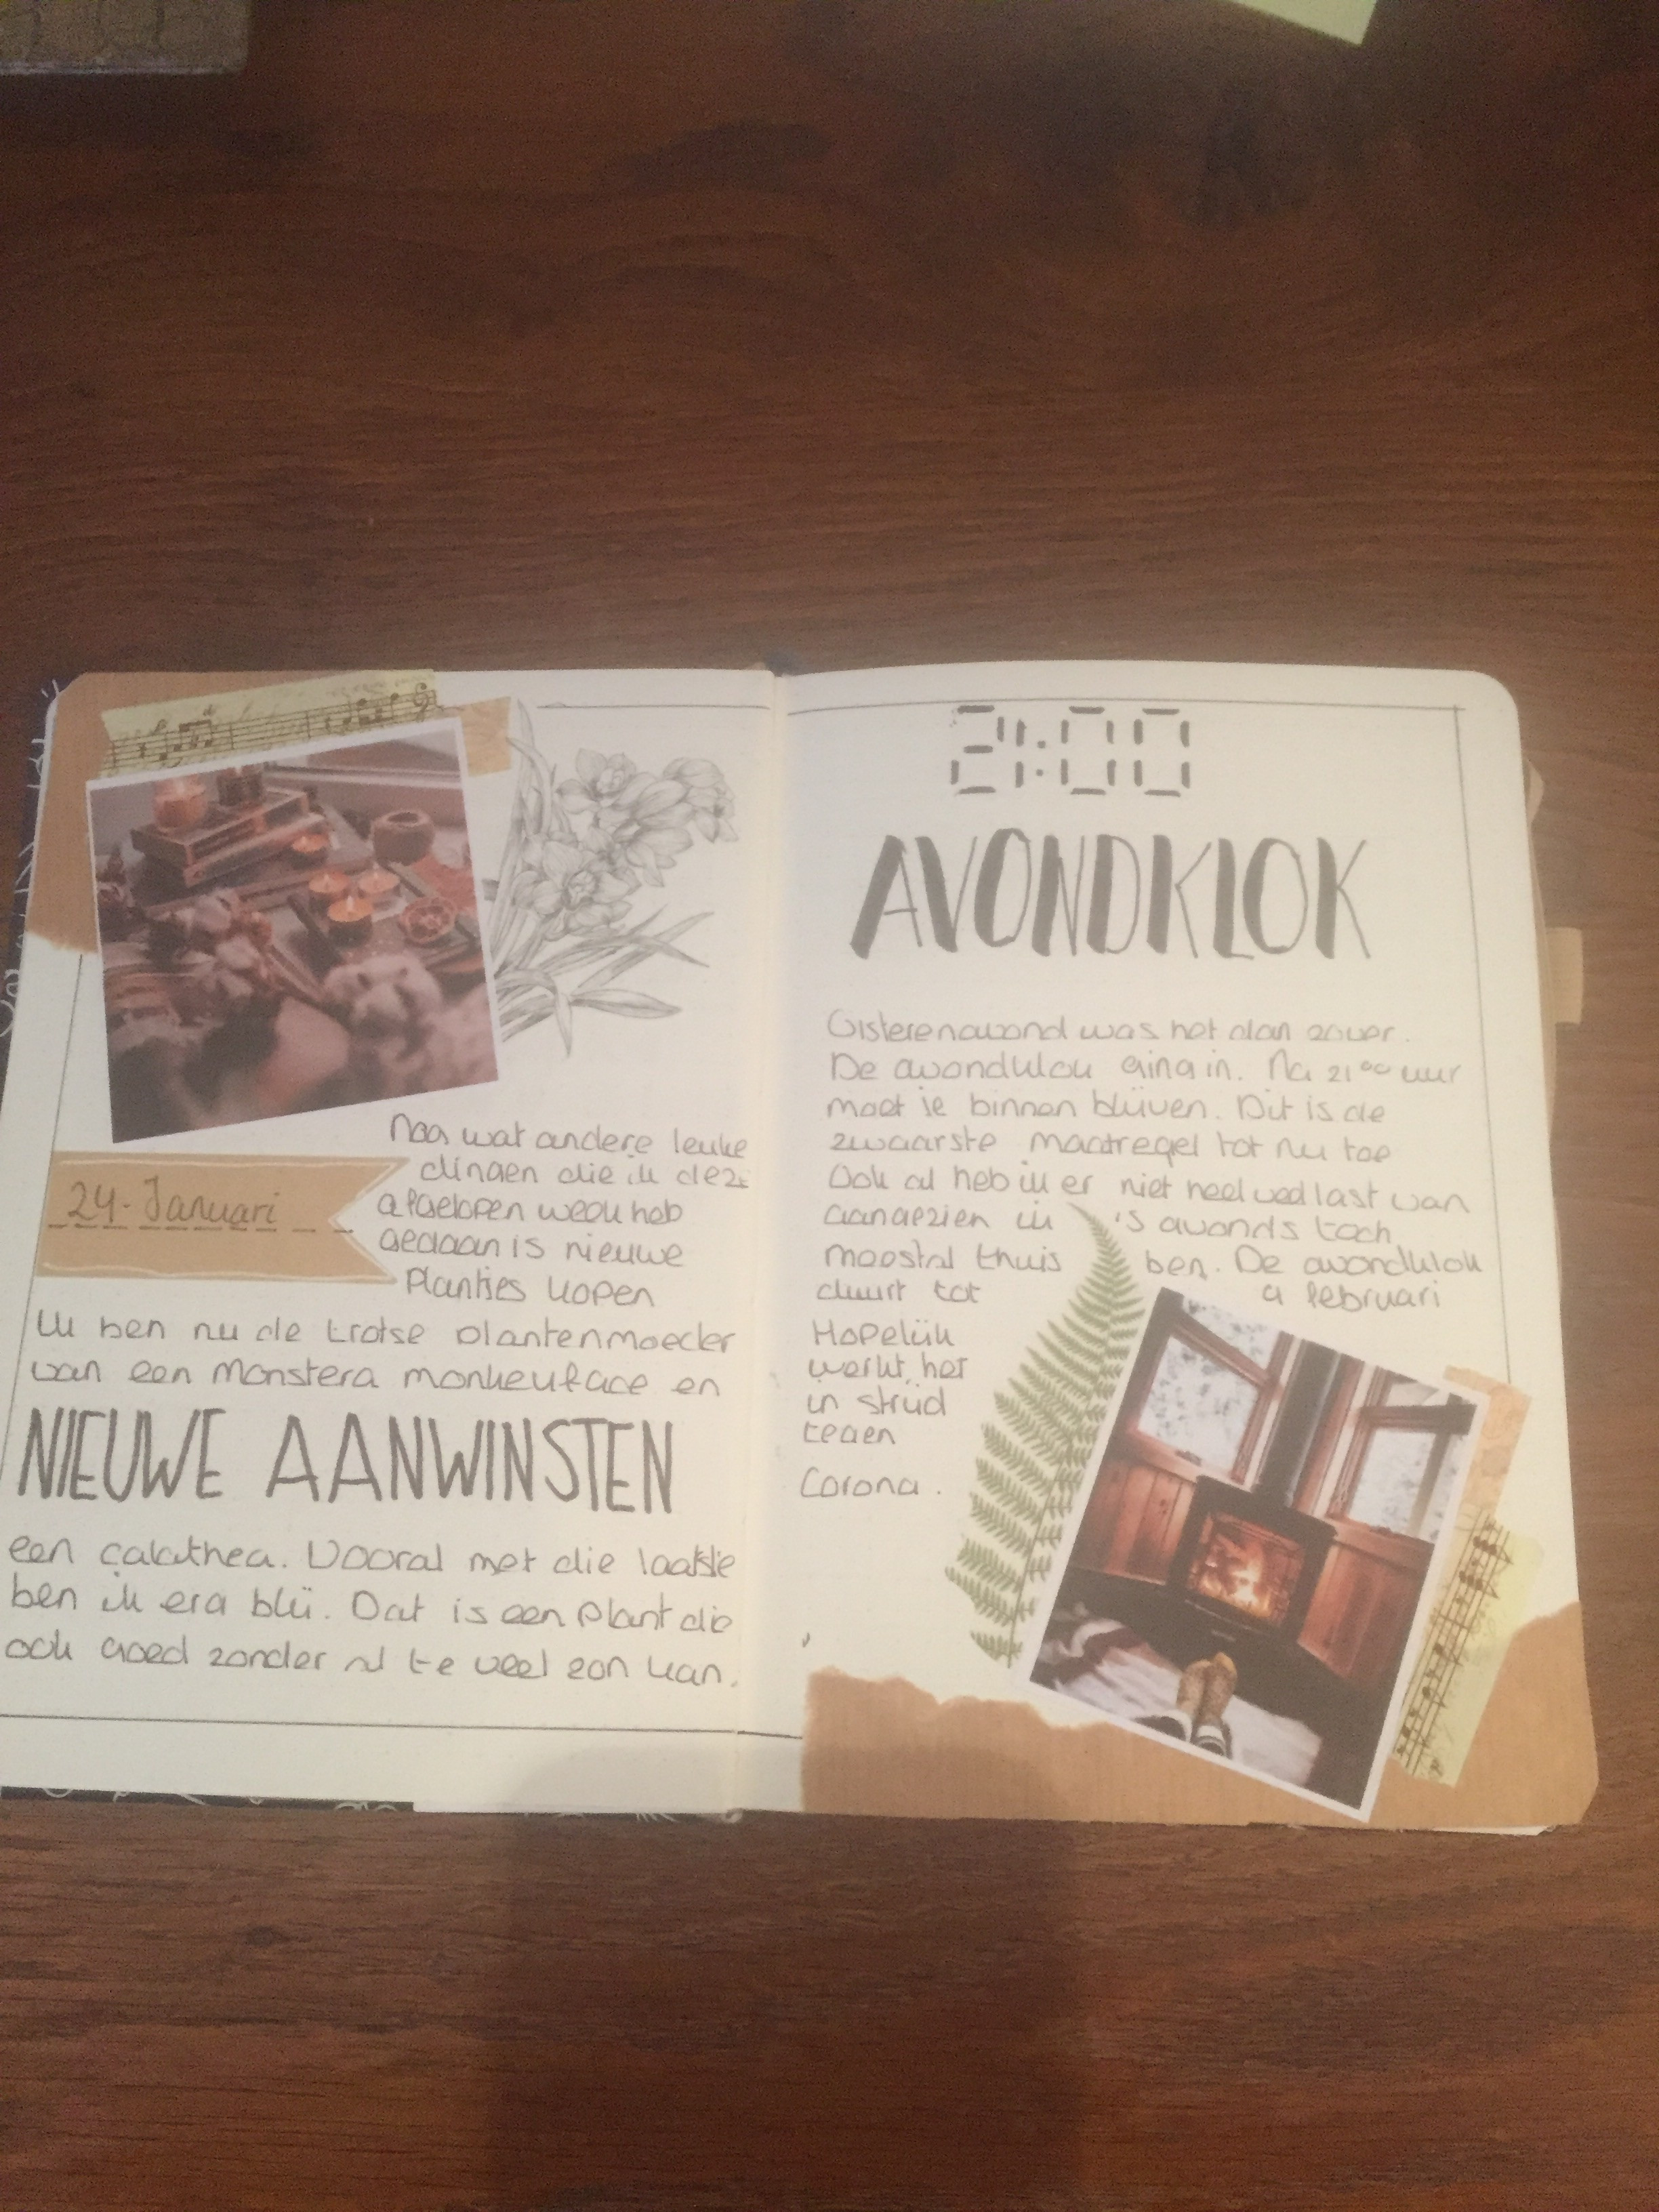 24 - Januari
Naa wat andere leuke
dingen die ik deze
afgelopen week heb
gedaan is nieuwe
Plantjes kopen
Ik ben nu de trotse plantenmoeder
van een Monstera monkeyface en
NIEUWE AANWINSTEN
een calathea. Vooral met die laatste
ben ik erg blij. Dat is een plant die
ook goed zonder al te veel zon kan.
21:00
AVONDKLOK
Gisterenavond was het dan zover.
De avondklok ging in. Na 21°° uur
moet je binnen blijven. Dit is de
zwaarste maatregel tot nu toe
Ook al heb ik er niet heel veel last van
aangezien ik 's avonds toch
meestal thuis ben. De avondklok
duurt tot 9 februari
Hopelijk
werkt het
in strijd
tegen
Corona.